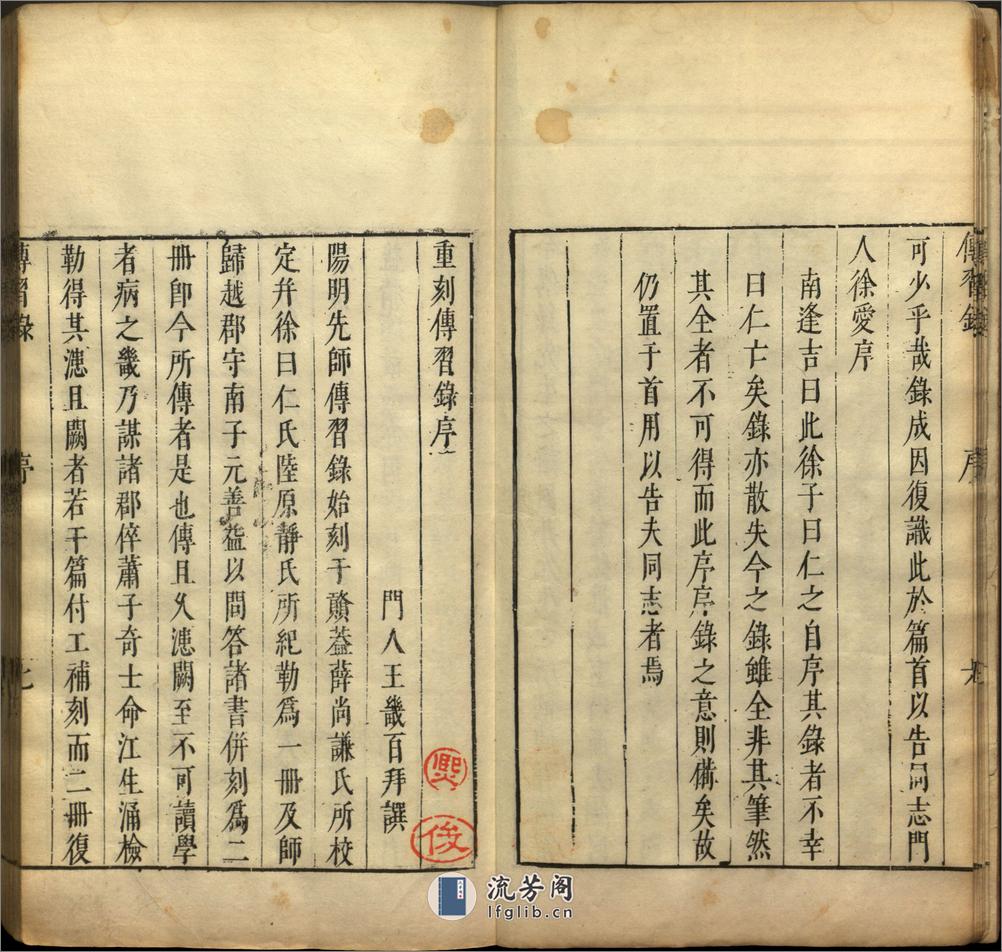 傳習錄
序
可少乎哉錄成因復識此於篇首以告同志門
人徐愛序
南逢吉曰此徐子曰仁之自序其錄者不幸
曰仁亡矣錄亦散失今之錄雖全非其筆然
其全者不可得而此序序錄之意則備矣故
仍置于首用以告夫同志者焉
重刻傳習錄序
門人王畿百拜譔
陽明先師傳習錄始刻于贛葢薛尚謙氏所校
定幷徐曰仁氏陸原靜氏所紀勒爲一冊及師
歸越郡守南子元善益以問答諸書併刻爲二
冊卽今所傳者是也傳且久漶闕至不可讀學
者病之畿乃謀諸郡倅蕭子奇士命江生涌檢
勒得其漶且闕者若干篇付工補刻而二冊復
傳習錄
序
七
俊
流芳阁
lfglib.cn